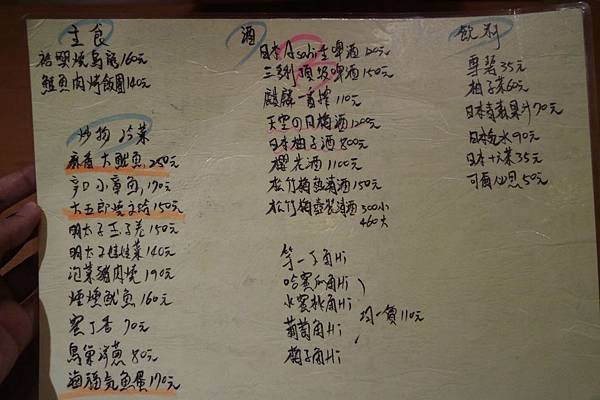 主食
招牌燒烏龍160元
鮭魚肉烤飯團140元
炒物 冷菜
麻香大魷魚,250元
辛口小章魚,170元
150元
明太子玉子卷150元
明太子娃娃菜140元
泡菜豬肉燒190元
煙燻魷魚160元
蜜丁香 70元
鳥巢洋蔥 80元
海福氣魚蛋170元
酒
日本Asahi生啤酒120元
三多利頂級啤酒150元
麒麟一番搾 110元
天空の月梅酒1200元
日本柚子酒 800元
櫻花酒1100元
松竹梅 清酒150元
松竹梅壺裝清酒 300小
460大
第一丁角Hi
哈蜜瓜角Hi
水蜜桃角Hi
均一價110元
葡萄角Hi
梅子角Hi
飲料
雪碧35元
柚子茶60元
日本青森果汁70元
日本 水90元
日本 茶35元
可爾必思50元